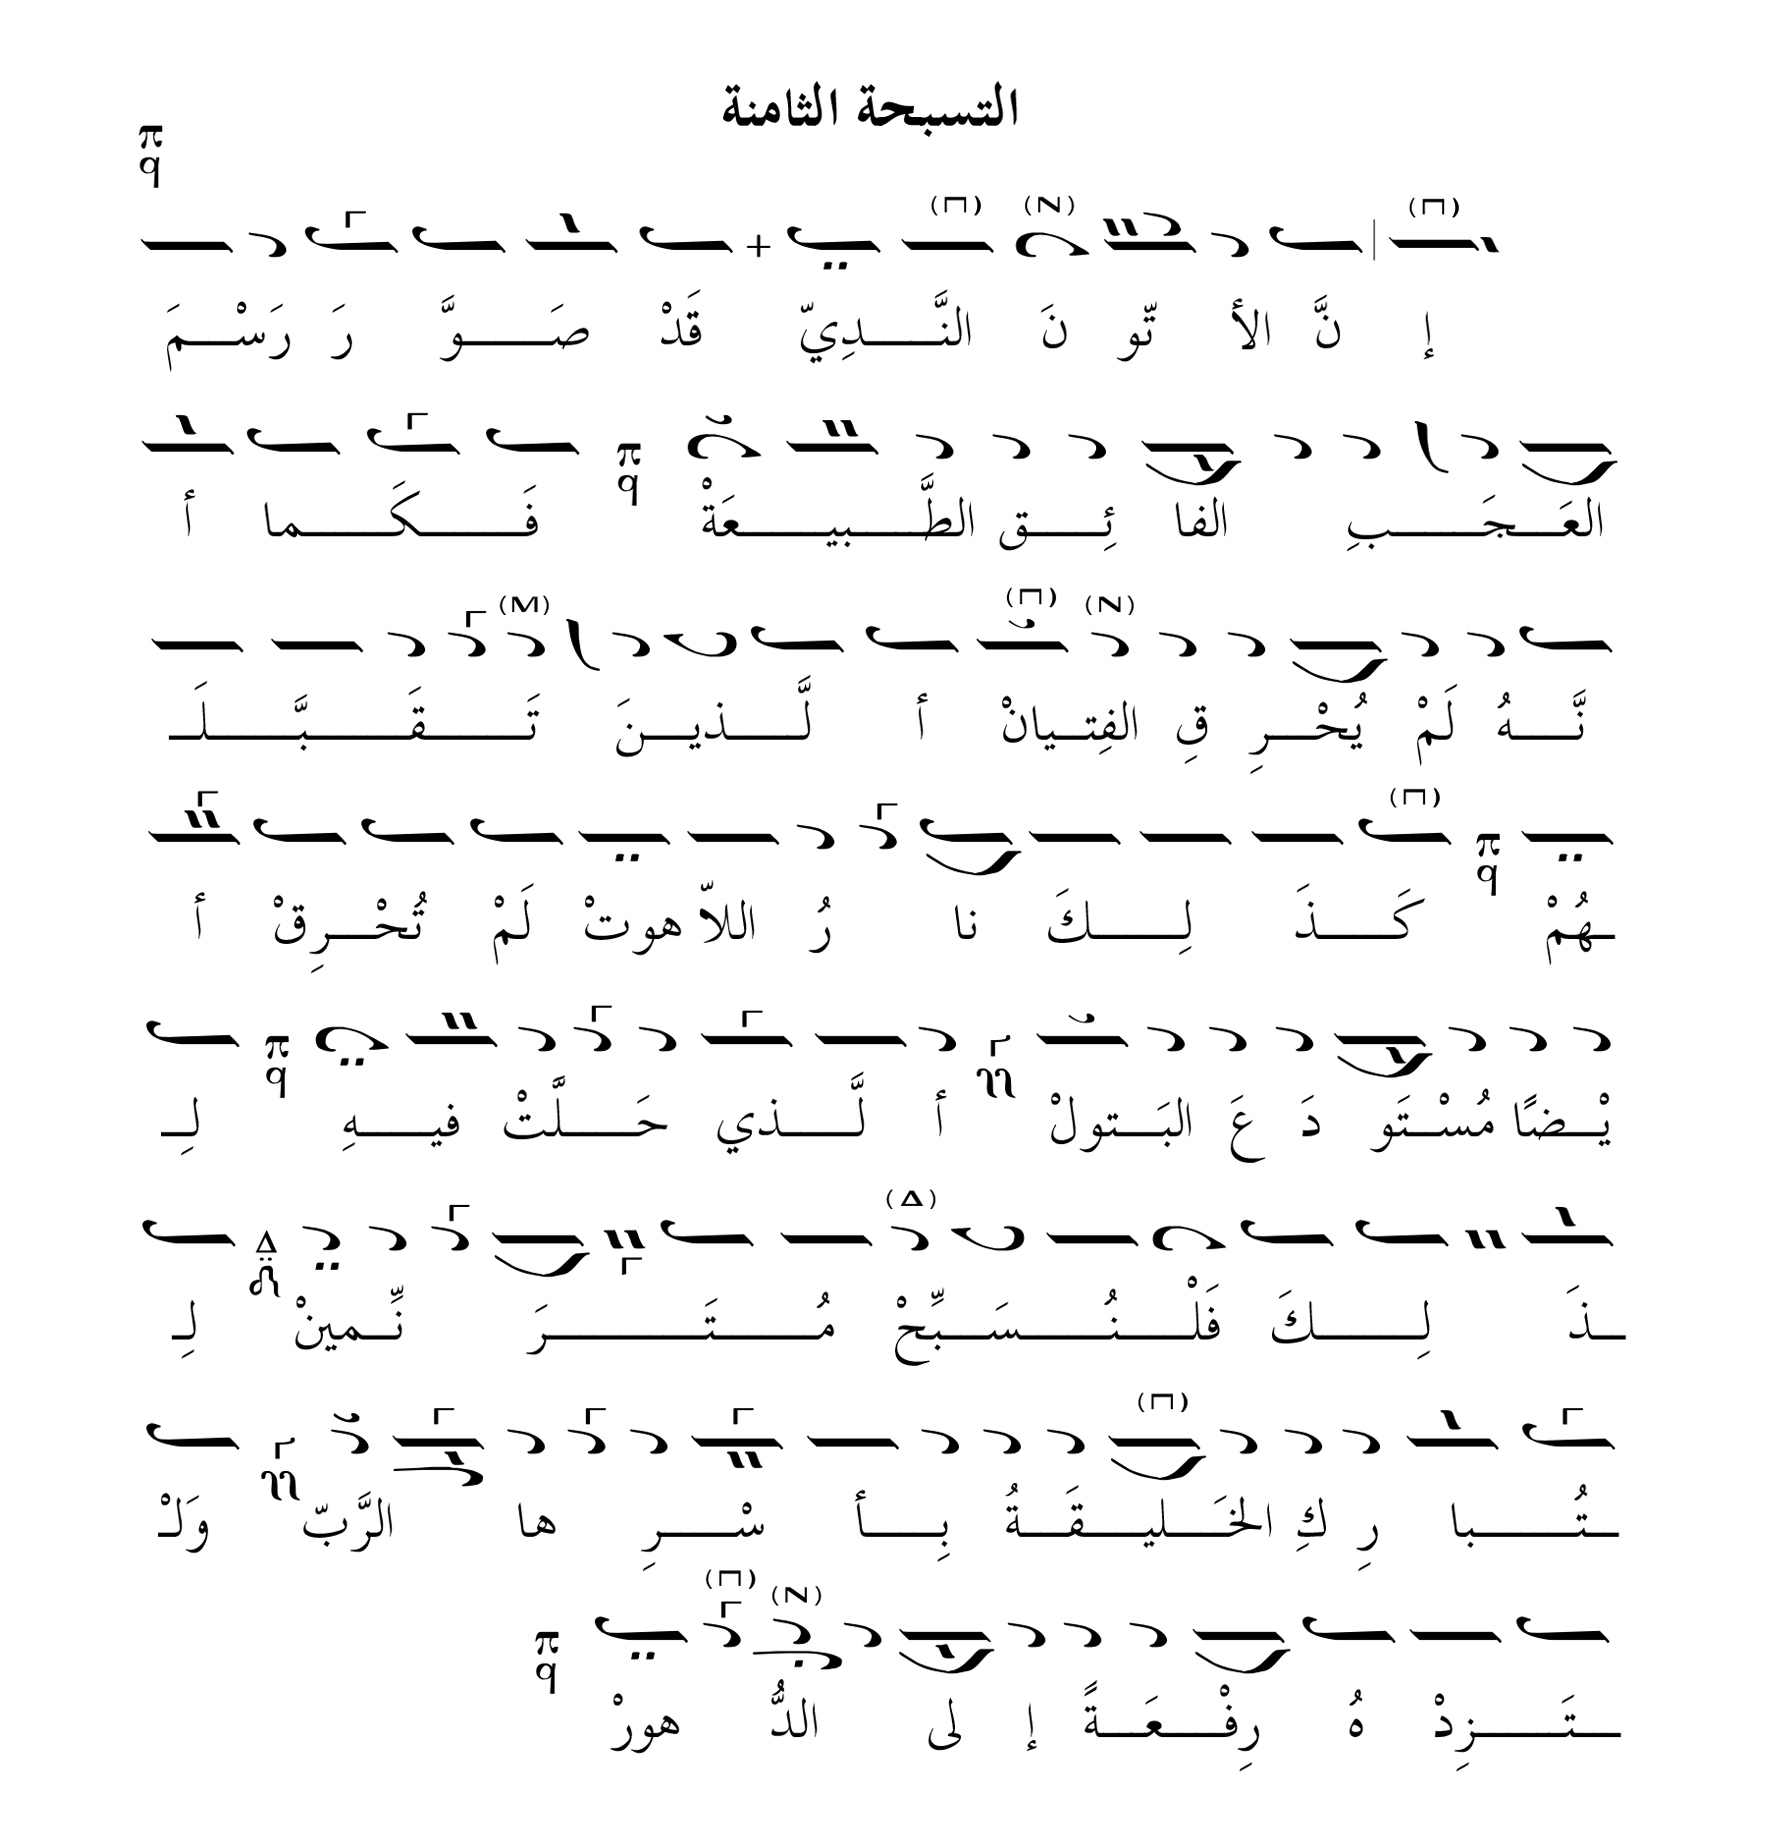 التسبحة الثامنة
π
q
(Π) (N) (Π) Γ
إ نَّ الأ تّو نَ النَّـــدِيّ قَدْ صَـــوَّ رَ رَسْـمَ
π
q
Γ
العَـجَـــبِ الفا ئِـــق الطَّـــبيـــعَةْ فَـــكَـــما أ
(N) (Π) (M) Γ
نَّـــهُ لَمْ يُحْـــرِ قِ الفِتـيانْ أ لَّـــذيـنَ تَـــقَـــبَّـــلَـ
(Π) π
q
Γ Γ
ـهُمْ كَـــذَ لِـــكَ نا رُ اللاّ هوتْ لَمْ تُحْـــرِقْ أ
Γ Γ π
q
يْـــضًا مُسْـتَو دَ عَ البَـــتولْ أ لَّـــذي حَـــلَّتْ فيـــهِ لِـ
(Δ) Γ Γ Δ
ـذَ لِـــكَ فَلْـــنُـــسَـــبِّحْ مُـــتَـــرَ نِّـمينْ لِـ
Γ (Π) Γ Γ Γ
ـتُـــبا رِ كِ الخَـــليـــقَـــةُ بِـــأ سْـــرِ ها الرَّبّ وَلْـ
(N) (Π) Γ π
q
ـتَـــزِدْ هُ رِفْـــعَـــةً إ لى الدُّ هورْ